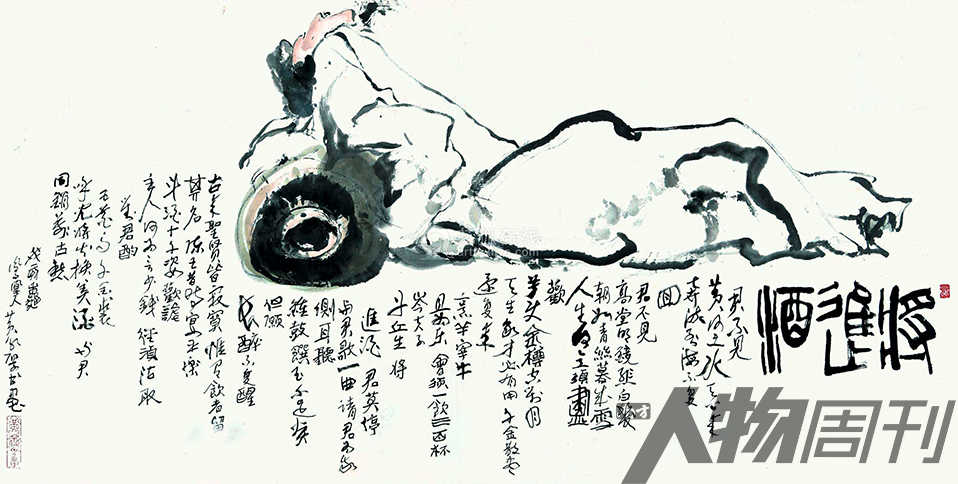 將進酒
君不見
黄河之水天上來
奔流到海不復
回
君不見
高堂明鏡悲白髮
朝如青絲暮成雪
人生得意須盡
歡
莫使金樽空對月
天生我才必有用千金散盡
還復來
烹羊宰牛
且為樂會須一飲三百杯
岑夫子
丹丘生將
進酒君莫停
與君歌一曲請君為我
側耳聽
鐘鼓饌玉不足貴
但願
長醉不復醒
古來聖賢皆寂寞惟有飲者留
其名陳王昔時宴平樂
斗酒十千恣歡謔
主人何為言少錢徑須沽取
對君酌
五花馬千金裘
呼兒將出換美酒與尔
同銷萬古愁
人物周刊